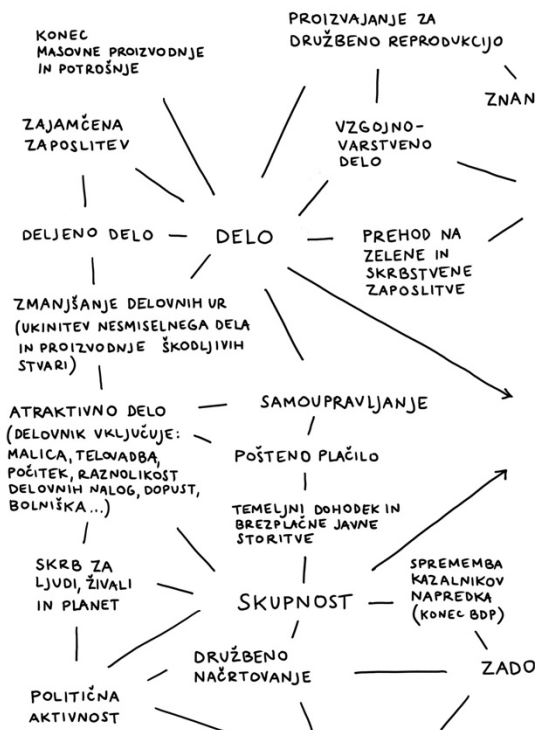 KONEC
MASOVNE PROIZVODNJE
IN POTROŠNJE
PROIZVAJANJE ZA
DRUŽBENO REPRODUKCIJO
ZNAN
ZAJAMČENA
ZAPOSLITEV
VZGOJNO-
VARSTVENO
DELO
DELJENO DELO
DELO
PREHOD NA
ZELENE IN
SKRBSTVENE
ZAPOSLITVE
ZMANJŠANJE DELOVNIH UR
(UKINITEV NESMISELNEGA DELA
IN PROIZVODNJE ŠKODLJIVIH
STVARI)
ATRAKTIVNO DELO
(DELOVNIK VKLJUČUJE:
MALICA, TELOVADBA,
POČITEK, RAZNOLIKOST
DELOVNIH NALOG, DOPUST,
BOLNIŠKA...)
SAMOUPRAVLJANJE
POŠTENO PLAČILO
TEMELJNI DOHODEK IN
BREZPLAČNE JAVNE
STORITVE
SKRB ZA
LJUDI, ŽIVALI
IN PLANET
SKUPNOST
SPREMEMBA
KAZALNIKOV
NAPREDKA
(KONEC BDP)
DRUŽBENO
NAČRTOVANJE
ZADO
POLITIČNA
AKTIVNOST